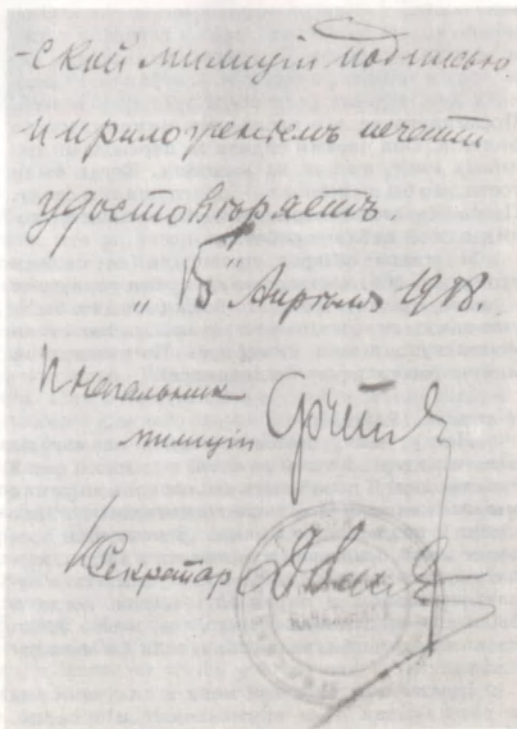 -ской милиціи подписью
и приложеніемъ печати
удостовѣряетъ
„15" Апрѣля 1918.
Начальник
милиціи
Секретар